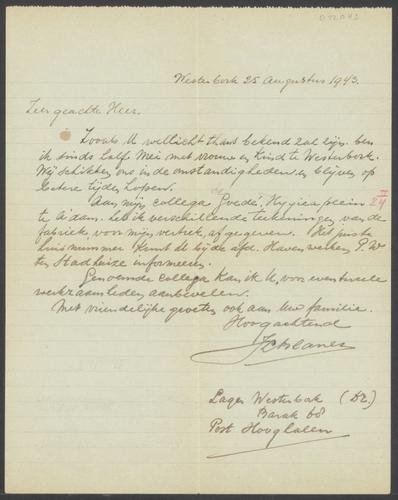 Westerbork 25 Augustus 1943.
Zeer geachte Heer.
Zooals U wellicht thans bekend zal zijn, ben
ik sinds half Mei met vrouw en kind te Westerbork.
Wij schikken ons in de omstandigheden en blijven op
betere tijden hopen.
Aan mijn collega de Goede, Hygieaplein 24
te A'dam. heb ik verschillende teekeningen van de
fabriek, voor mijn vertrek, afgegeven. Het juiste
huisnummer kunt U bij de afd. Havenwerken P.W
ten Stadhuize informeren.
Genoemde collega kan ik U, voor eventueele
werkzaamheden aanbevelen.
Met vriendelijke groeten ook aan Uw familie.
Hoogachtend
Lager Westerbork (Dr.)
Barak 68
Post Hooghalen